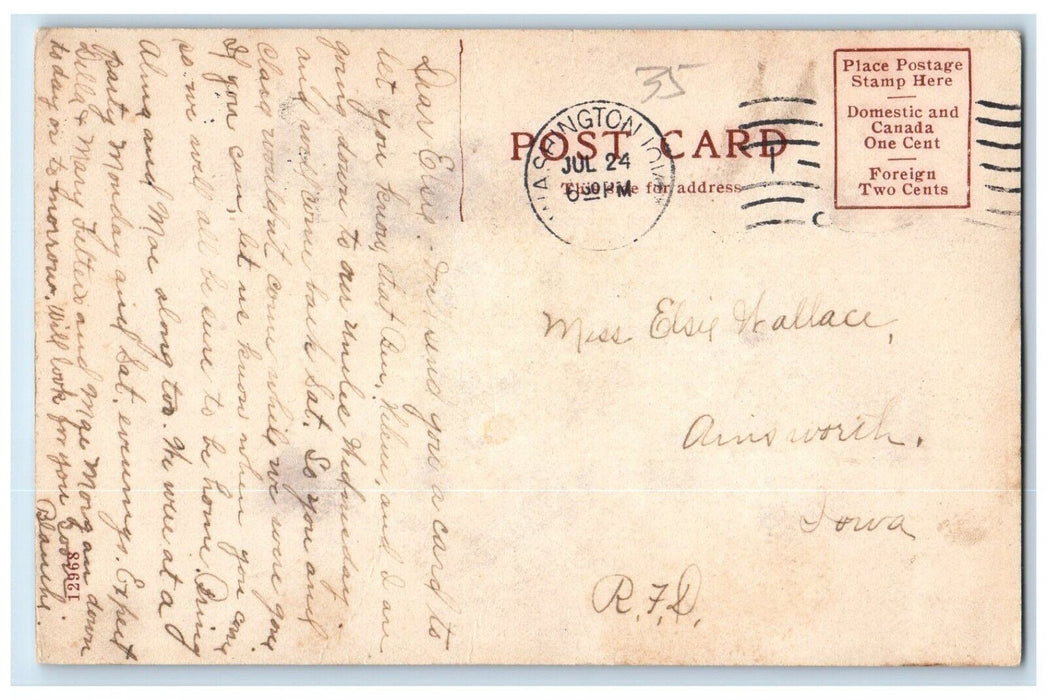 35
POST CARD
This side for address
WASHINGTON IOWA
JUL 24
6 30 PM
Place Postage
Stamp Here
Domestic and
Canada
One Cent
Foreign
Two Cents
Miss Elsie Wallace,
Ainsworth.
Iowa
R.F.D.
Dear Elsie. send you a card to
let you know that and I are
going down to our uncles Wednesday
and come back Sat. So you and
Clara wouldnt come while we were gone
If you can, let us know when you can
so we will all be sure to be home. Bring
Alma and Mae along too. We were at a
party Monday and Sat. evenings. Expect
Dilla & Mary and Mae Morgan down
today or to morrow. Will look for you
Blanche.
12968